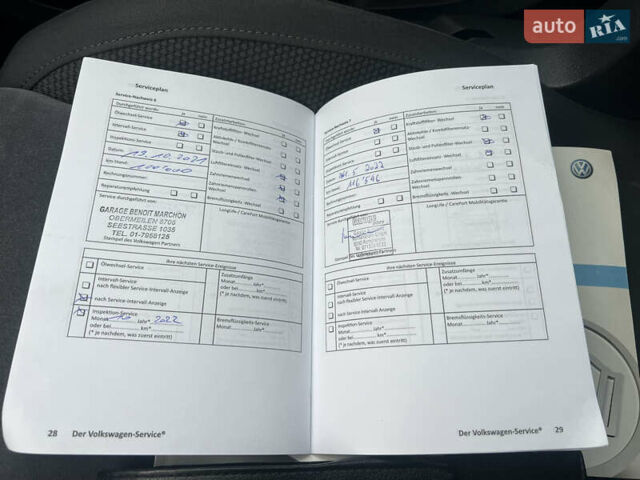 auto RIA .com
Serviceplan
Service-Nachweis 6
Durchgeführt wurde: ja nein Zusatzarbeiten: ja nein
Ölwechsel-Service Kraftstofffilter-Wechsel
Intervall-Service
Inspektions-Service Staub- und Pollenfilter-Wechsel
Datum: 19.10.2021 Luftfiltereinsatz-Wechsel
km-Stand: Zahnriemen-Wechsel
Rechnungsnummer:
Reparaturempfehlung Bremsflüssigkeits-Wechsel
Service durchgeführt von: LongLife / CarePort Mobilitätsgarantie
GARAGE BENOIT MARCHON
OBERMEILEN 8706
SEESTRASSE 1035
TEL. 01-7956125
Stempel des Volkswagen Partners
Ihre nächsten Service-Ereignisse
Ölwechsel-Service
Intervall-Service
nach flexibler Service-Intervall-Anzeige
nach Service-Intervall-Anzeige
Inspektion-Service
Monat 10 Jahr* 2022
oder bei km*
(* je nachdem, was zuerst eintritt)
Zusatzumfänge
Monat Jahr*
oder bei km*
(* je nachdem, was zuerst eintritt)
Bremsflüssigkeits-Service
Monat Jahr
28 Der Volkswagen-Service®
Serviceplan
ja nein Zusatzarbeiten: ja nein
Kraftstofffilter-Wechsel
Staub- und Pollenfilter-Wechsel
Luftfiltereinsatz-Wechsel
5 2022 Zahnriemen-Wechsel
116'546
Bremsflüssigkeits-Wechsel
LongLife / CarePort Mobilitätsgarantie
Ihre nächsten Service-Ereignisse
Ölwechsel-Service
Intervall-Service
nach flexibler Service-Intervall-Anzeige
nach Service-Intervall-Anzeige
Inspektion-Service
Monat Jahr*
oder bei km*
(* je nachdem, was zuerst eintritt)
Zusatzumfänge
Monat Jahr*
oder bei km*
(* je nachdem, was zuerst eintritt)
Bremsflüssigkeits-Service
Monat Jahr
Der Volkswagen-Service® 29